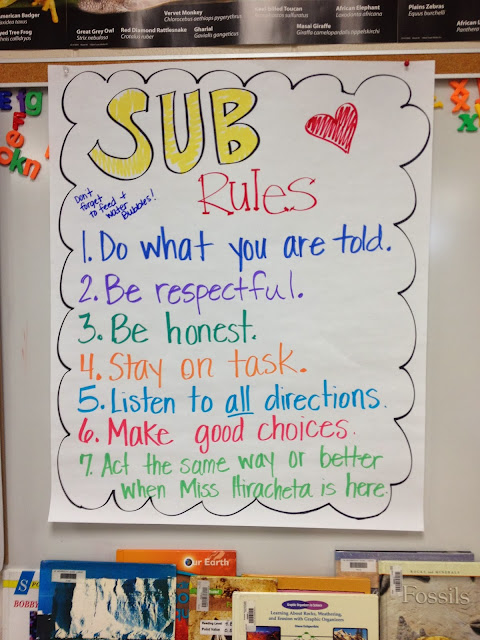 American Badger
Vervet Monkey
Chlorocebus aethiops pygerythrus
African Elephant
Loxodonta africana
Plains Zebras
Equus burchelli
Great Grey Owl
Strix nebulosa
Red Diamond Rattlesnake
Crotalus ruber
Gharial
Gavialis gangeticus
Masai Giraffe
Giraffa camelopardalis tippelskirchi
SUB
Rules
Don't
forget
to feed +
water
Bubbles!
1. Do what you are told.
2. Be respectful.
3. Be honest.
4. Stay on task.
5. Listen to all directions.
6. Make good choices.
7. Act the same way or better
when Miss Hiracheta is here.
BOBBY
Our Earth
Graphic Organizers
Learning About Rocks, Weathering,
and Erosion with Graphic Organizers
ROCKS AND MINERALS
Fossils